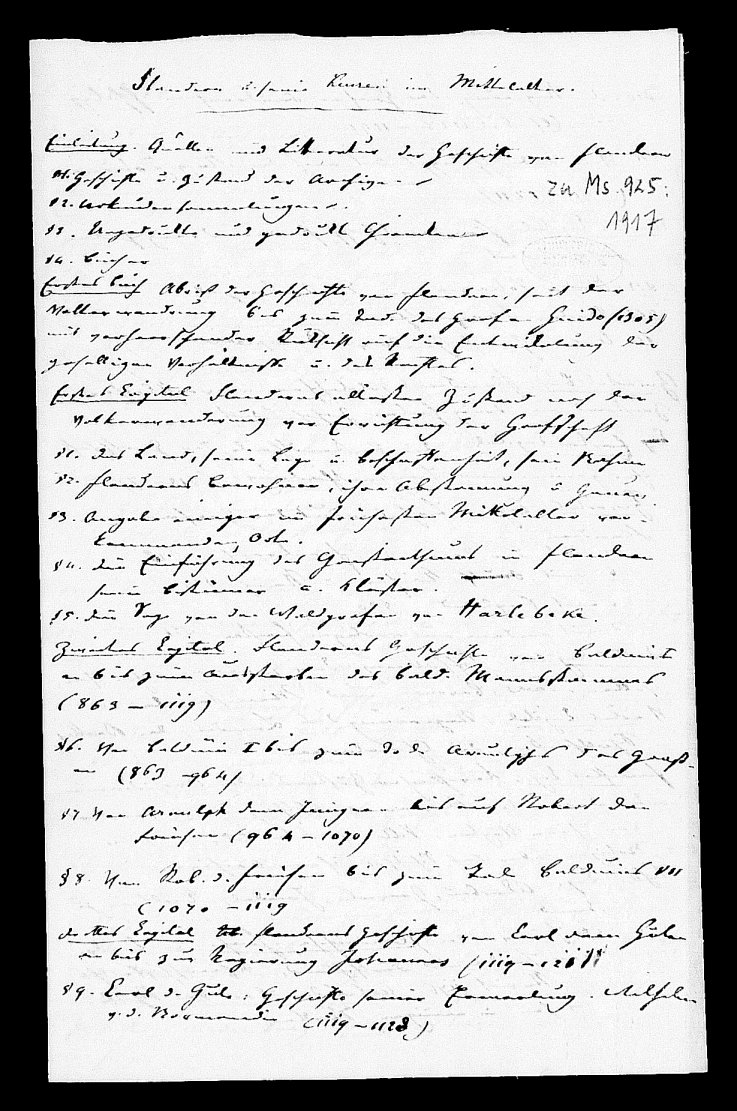 Flandern u. seine Kunst im Mittelalter.
Einleitung. Quellen und Litteratur der Geschichte von Flandern
§1. Geschichte u. Zustand der Archive
zu Ms. 925:
1917
§2. Urkundensammlungen.
§3. Ungedruckte und gedruckte Chroniken
§4. Bücher
Erstes Buch Abriß der Geschichte von Flandern, seit der
Völkerwanderung bis zum Tode des Grafen Guido (1305)
mit vorherrschender Rücksicht auf die Entwickelung der
geselligen Verhältnisse u. des
Erstes Capitel Flanderns ältester Zustand nach der
Völkerwanderung vor Errichtung der Grafschaft
§1. das Land, seine Lage u Beschaffenheit, sein Nahme
§2. Flanderns Bewohner, ihre Abstammung u
§3. Angabe einiger im frühesten Mittelalter
Orte.
§4. die Einführung des Christenthums in Flandern
seine Bistümer u. Klöster.
§5. die Sage von den Waldgrafen von Harlebeke.
Zweites Capitel. Flanderns Geschichte von Balduin I
an bis zum Aussterben des bald. Mannsstammes
(863 – 1119)
§6. Von Balduin I bis zum Tode Arnulphs des Groß-
en (863 – 964)
§7. Von Arnulph dem Jüngern bis auf Robert den
Friesen (964 – 1070)
§8. Von Rob. d. Friesen bis zum Tod Balduins VII
(1070 – 1119
drittes Capitel Flanderns Geschichte von Carl dem Guten
an bis zur Regierung Johannas (1119 –
§9. Carl d. Gute: Geschichte seiner Ermordung. Wilhelm
v. d. Normandie (1119 – 1128)